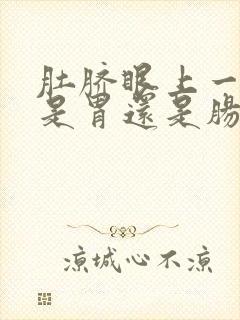 肚脐眼上一
是胃還是腸
凉城心不凉